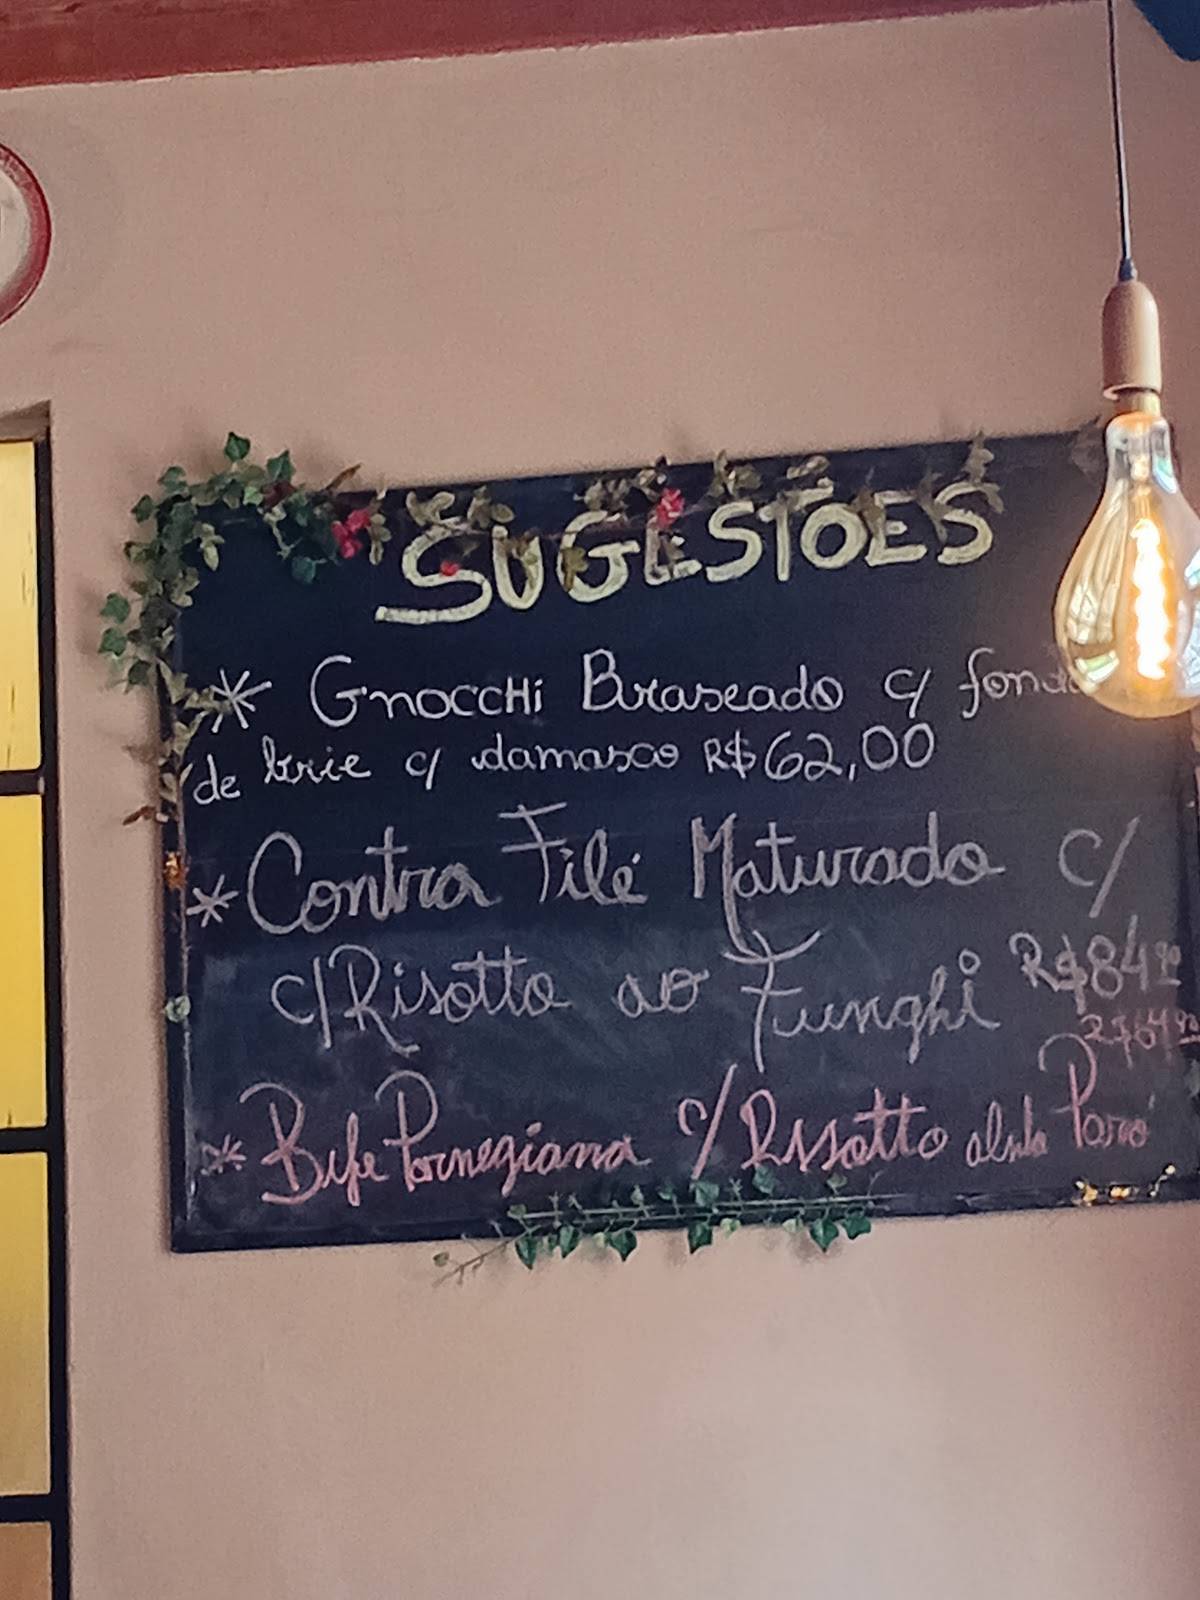 SUGESTÕES
* GnoccHi Braseado c/
de brie c/ damasco R$62,00
* Contra Filé Maturado c/
c/Risotto ao Funghi R$84,90
* Bife Parmegiana c/ Rissotto Poró